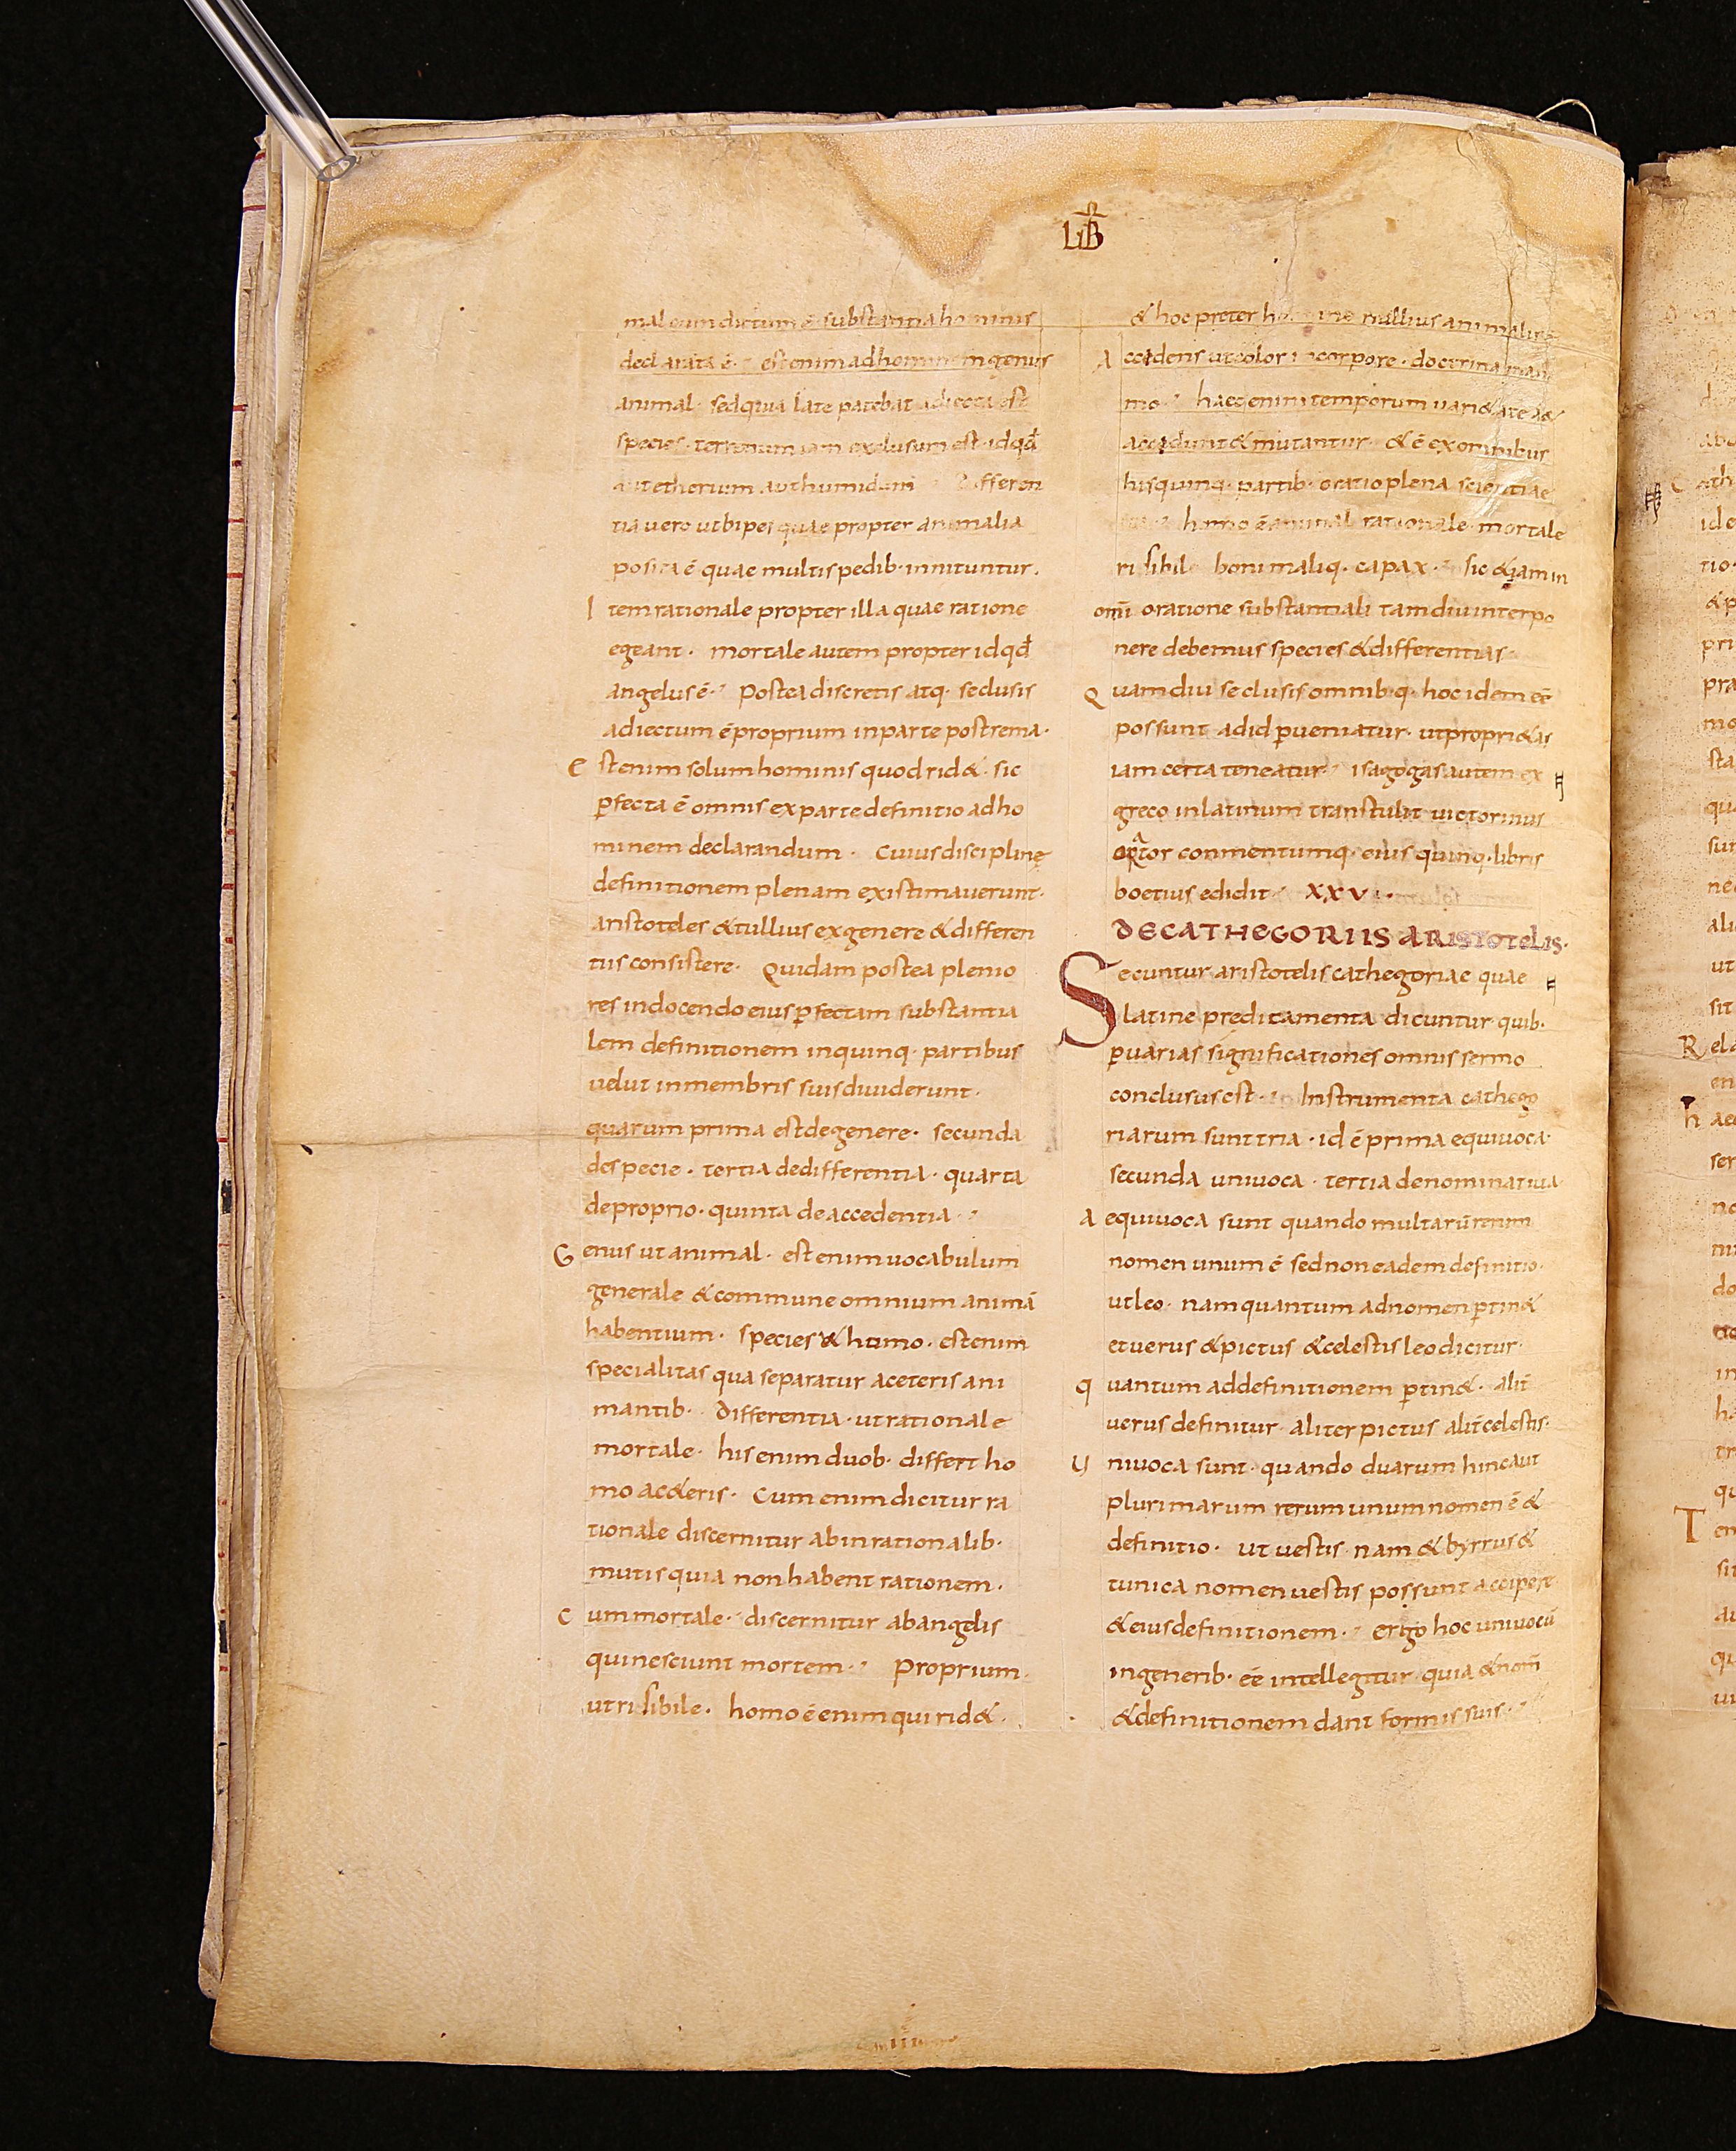 LIB
mal cum dictum ē substantia hominis
declarata ē. est enim ad hominem genus
animal. sed quia late patebat adiecta est
species. terrenum iam exclusum est. id qđ
aut etherium aut humidum Differen
tia uero ut bipes quae propter animalia
posita ē quae multis pedib. innituntur.
Item rationale propter illa quae ratione
egeant. mortale autem propter id qđ
angelus ē. Postea discretis atq. seclusis
adiectum ē proprium in parte postrema.
Est enim solum hominis quod rid&. sic
ꝑfecta ē omnis ex parte definitio ad ho
minem declarandum. Cuius discipline
definitionem plenam existimauerunt.
aristoteles & tullius ex genere & differen
tiis consistere. Quidam postea plenio
res in docendo eius ꝑfectam substantia
lem definitionem in quinq. partibus
uelut in membris suis diuiderunt.
quarum prima est de genere. secunda
de specie. tertia de differentia. quarta
de proprio. quinta de accedentia.
Genus ut animal. est enim uocabulum
generale & commune omnium animā
habentium. species & homo. est enim
specialitas qua separatur a ceteris ani
mantib. differentia. ut rationale
mortale. his enim duob. differt ho
mo a c&eris. Cum enim dicitur ra
tionale discernitur ab inrationalib.
mutis quia non habent rationem.
Cum mortale. discernitur ab angelis
qui nesciunt mortem. Proprium.
ut risibile. homo ē enim qui rid&.
& hoc preter hominē nullius animalis ē
Accidens ut color in corpore. doctrina in ani
mo. haec enim temporum uari&ate &
accidunt & mutantur. & ē ex omnibus
his quinq. partib. oratio plena scientiae
homo ē animal rationale. mortale
risibile boni maliq. capax. sic &iam in
omī oratione substantiali tamdiu interpo
nere debemus species & differentias.
Quamdiu seclusis omnib. q. hoc idem eē
possunt ad id ꝑueniatur. ut propri&as
iam certa teneatur. isagogas autem ex
greco in latinum transtulit uictorinus
orator conmentumq. eius quinq. libris
boetius edidit. XXVI.
DE CATHEGORIIS ARISTOTELIS.
Secuntur aristotelis cathegoriae quae
latine predicamenta dicuntur quib.
ꝑ uarias significationes omnis sermo
conclusus est. Instrumenta cathego
riarum sunt tria. id ē prima equiuoca.
secunda uniuoca. tertia denominatiua.
Aequiuoca sunt quando multarū rerum
nomen unum ē sed non eadem definitio.
ut leo. nam quantum ad nomen ꝑtin&
et uerus & pictus & celestis leo dicitur.
Quantum ad definitionem ꝑtin&. alit̄
uerus definitur. aliter pictus alit̄ celestis.
Uniuoca sunt. quando duarum hinc aut
plurimarum rerum unum nomen ē &
definitio. ut uestis. nam & byrrus &
tunica nomen uestis possunt accipere
& eius definitionem. ergo hoc uniuocū
in generib. eē intellegitur quia & nom̄
& definitionem dant formis suis.